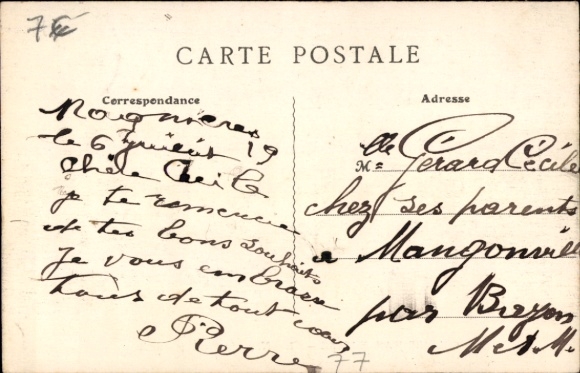 7€
CARTE POSTALE
Correspondance
Adresse
Magnières
le 6 Juillet 19
Chère Cécile
je te remercie
de tes bons souhaits
Je vous embrasse
tous de tout cœur
Pierre
77
M^lle Gérard Cécile
chez ses parents
a Mangonville
par Bayon
M et M.